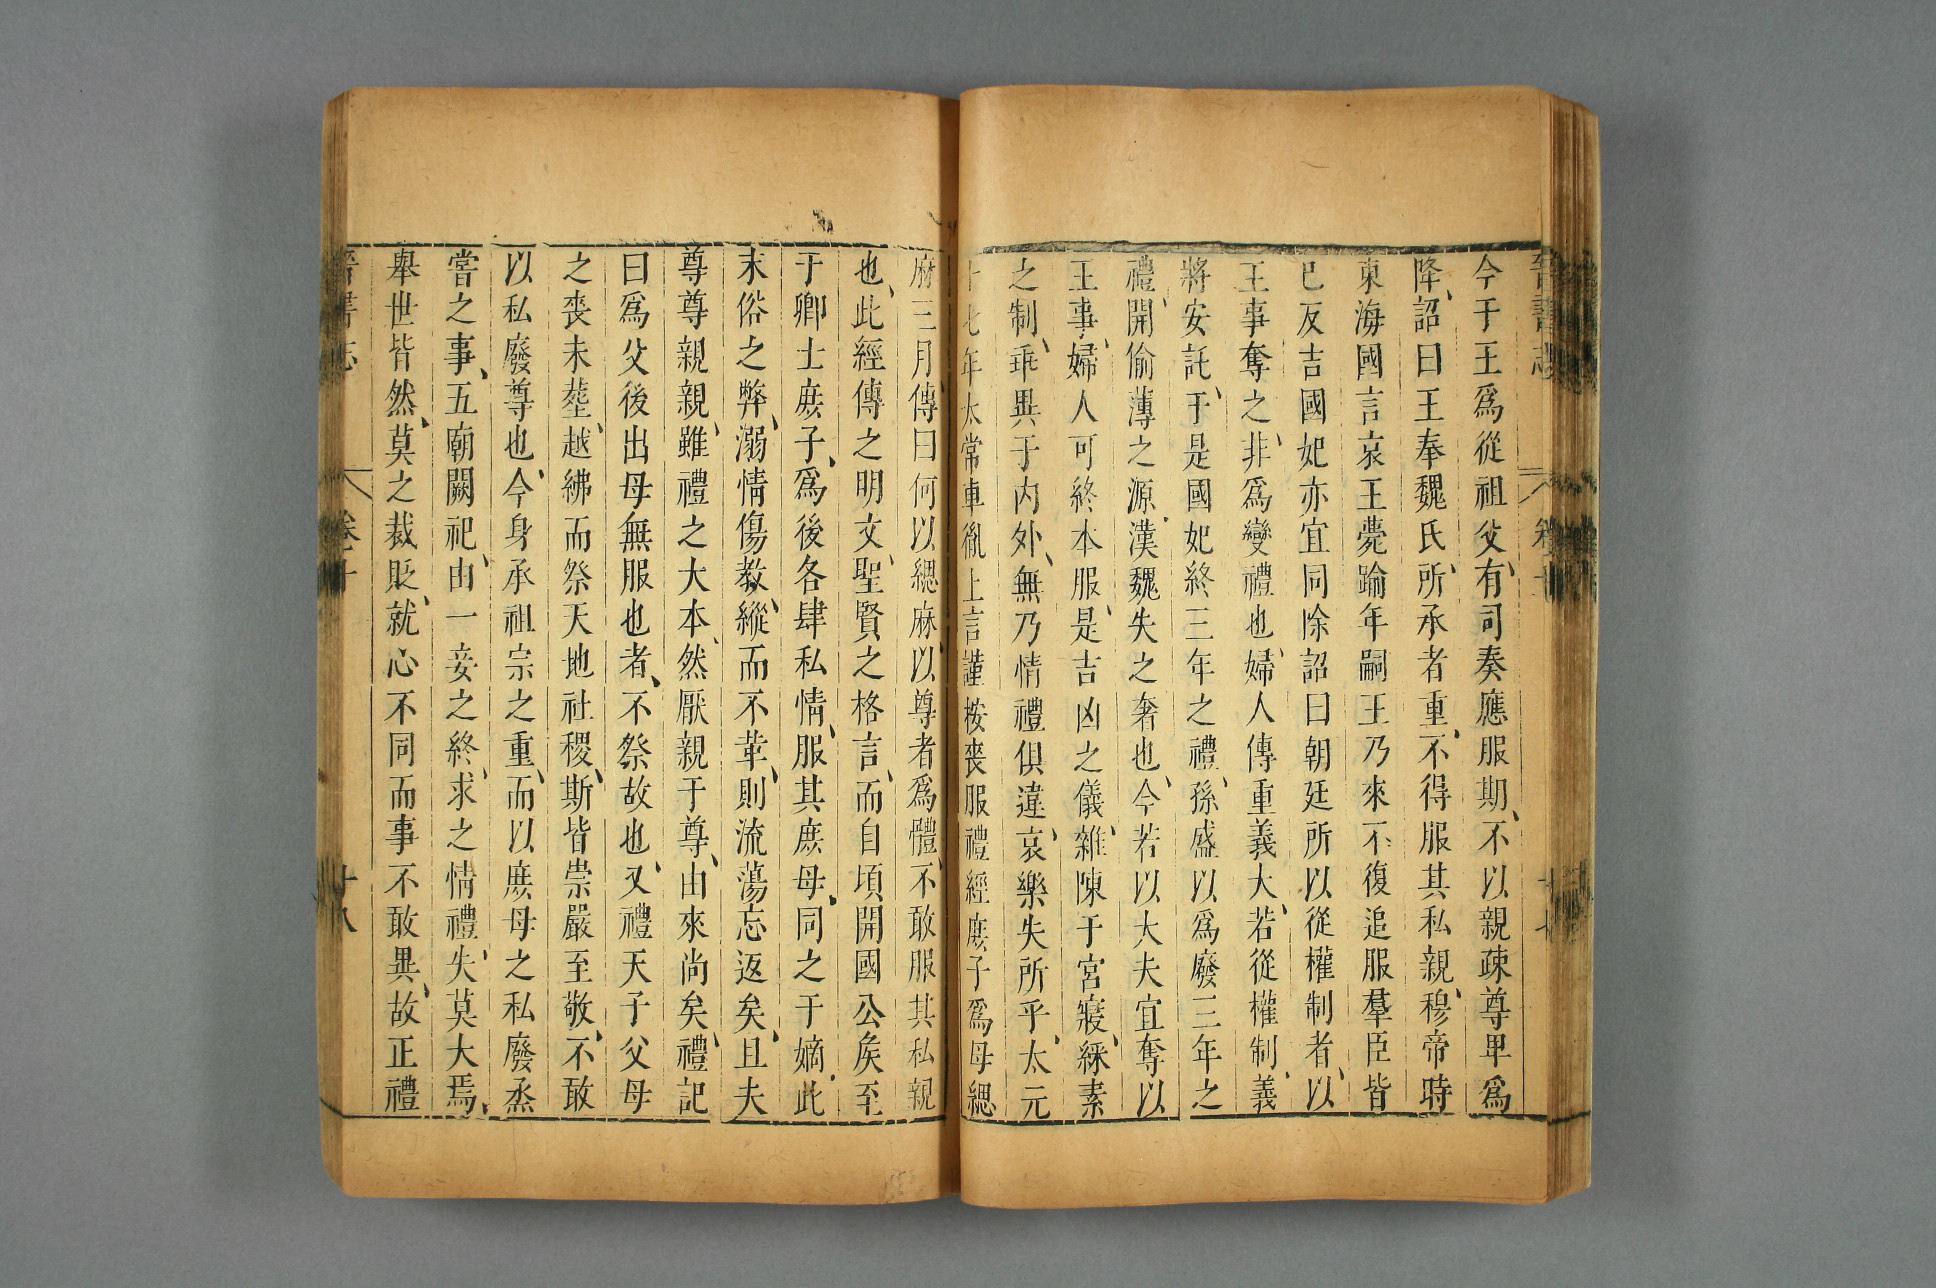 晉書志 卷十 十七
今于王爲從祖父有司奏應服期不以親疎尊卑爲
降詔曰王奉魏氏所承者重不得服其私親穆帝時
東海國言哀王薨踰年嗣王乃來不復追服羣臣皆
已反吉國妃亦宜同除詔曰朝廷所以從權制者以
王事奪之非爲變禮也婦人傳重義大若從權制義
將安託于是國妃終三年之禮孫盛以爲廢三年之
禮開偷薄之源漢魏失之奢也今若以大夫宜奪以
王事婦人可終本服是吉凶之儀雜陳于宮寢綵素
之制乖異于内外無乃情禮俱違哀樂失所乎太元
十七年太常車胤上言謹桉喪服禮經庶子爲母緦
麻三月傳曰何以緦麻以尊者爲體不敢服其私親
也此經傳之明文聖賢之格言而自頃開國公矦至
于卿士庶子爲後各肆私情服其庶母同之于嫡此
末俗之弊溺情傷教縱而不革則流蕩忘返矣且夫
尊尊親親雖禮之大本然厭親于尊由來尚矣禮記
曰爲父後出母無服也者不祭故也又禮天子父母
之喪未塟越紼而祭天地社稷斯皆崇嚴至敬不敢
以私廢尊也今身承祖宗之重而以庶母之私廢烝
嘗之事五廟闕祀由一妾之終求之情禮失莫大焉
舉世皆然莫之裁貶就心不同而事不敢異故正禮
晉書志 卷十 十八